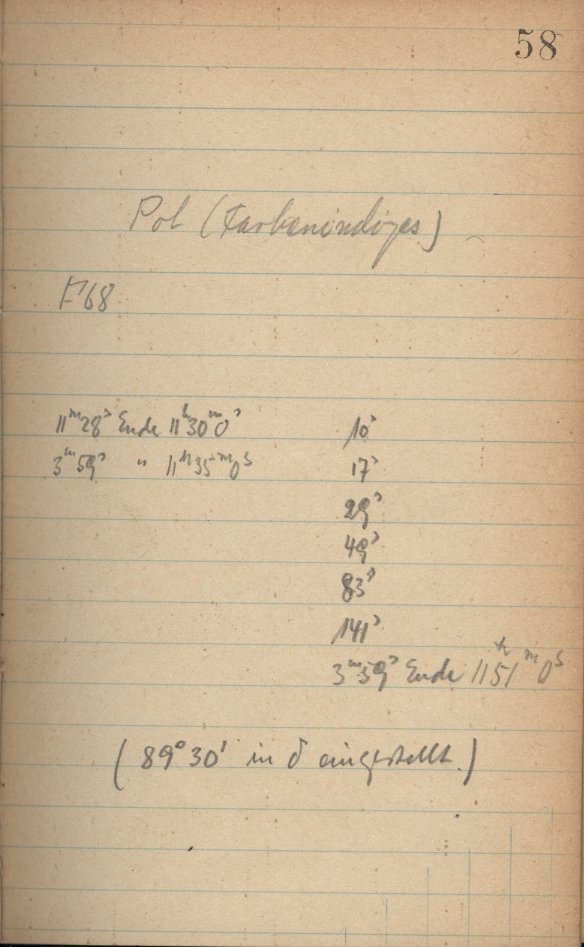 58
Pol (Farbenindizes)
F68
11ᵐ28ˢ Ende 11ʰ30ᵐ0ˢ 10ˢ
3ᵐ59ˢ " 11ʰ35ᵐ0ˢ 17ˢ
29ˢ
49ˢ
83ˢ
141ˢ
3ᵐ59ˢ Ende 11ʰ51ᵐ0ˢ
(89°30' in δ eingestellt.)